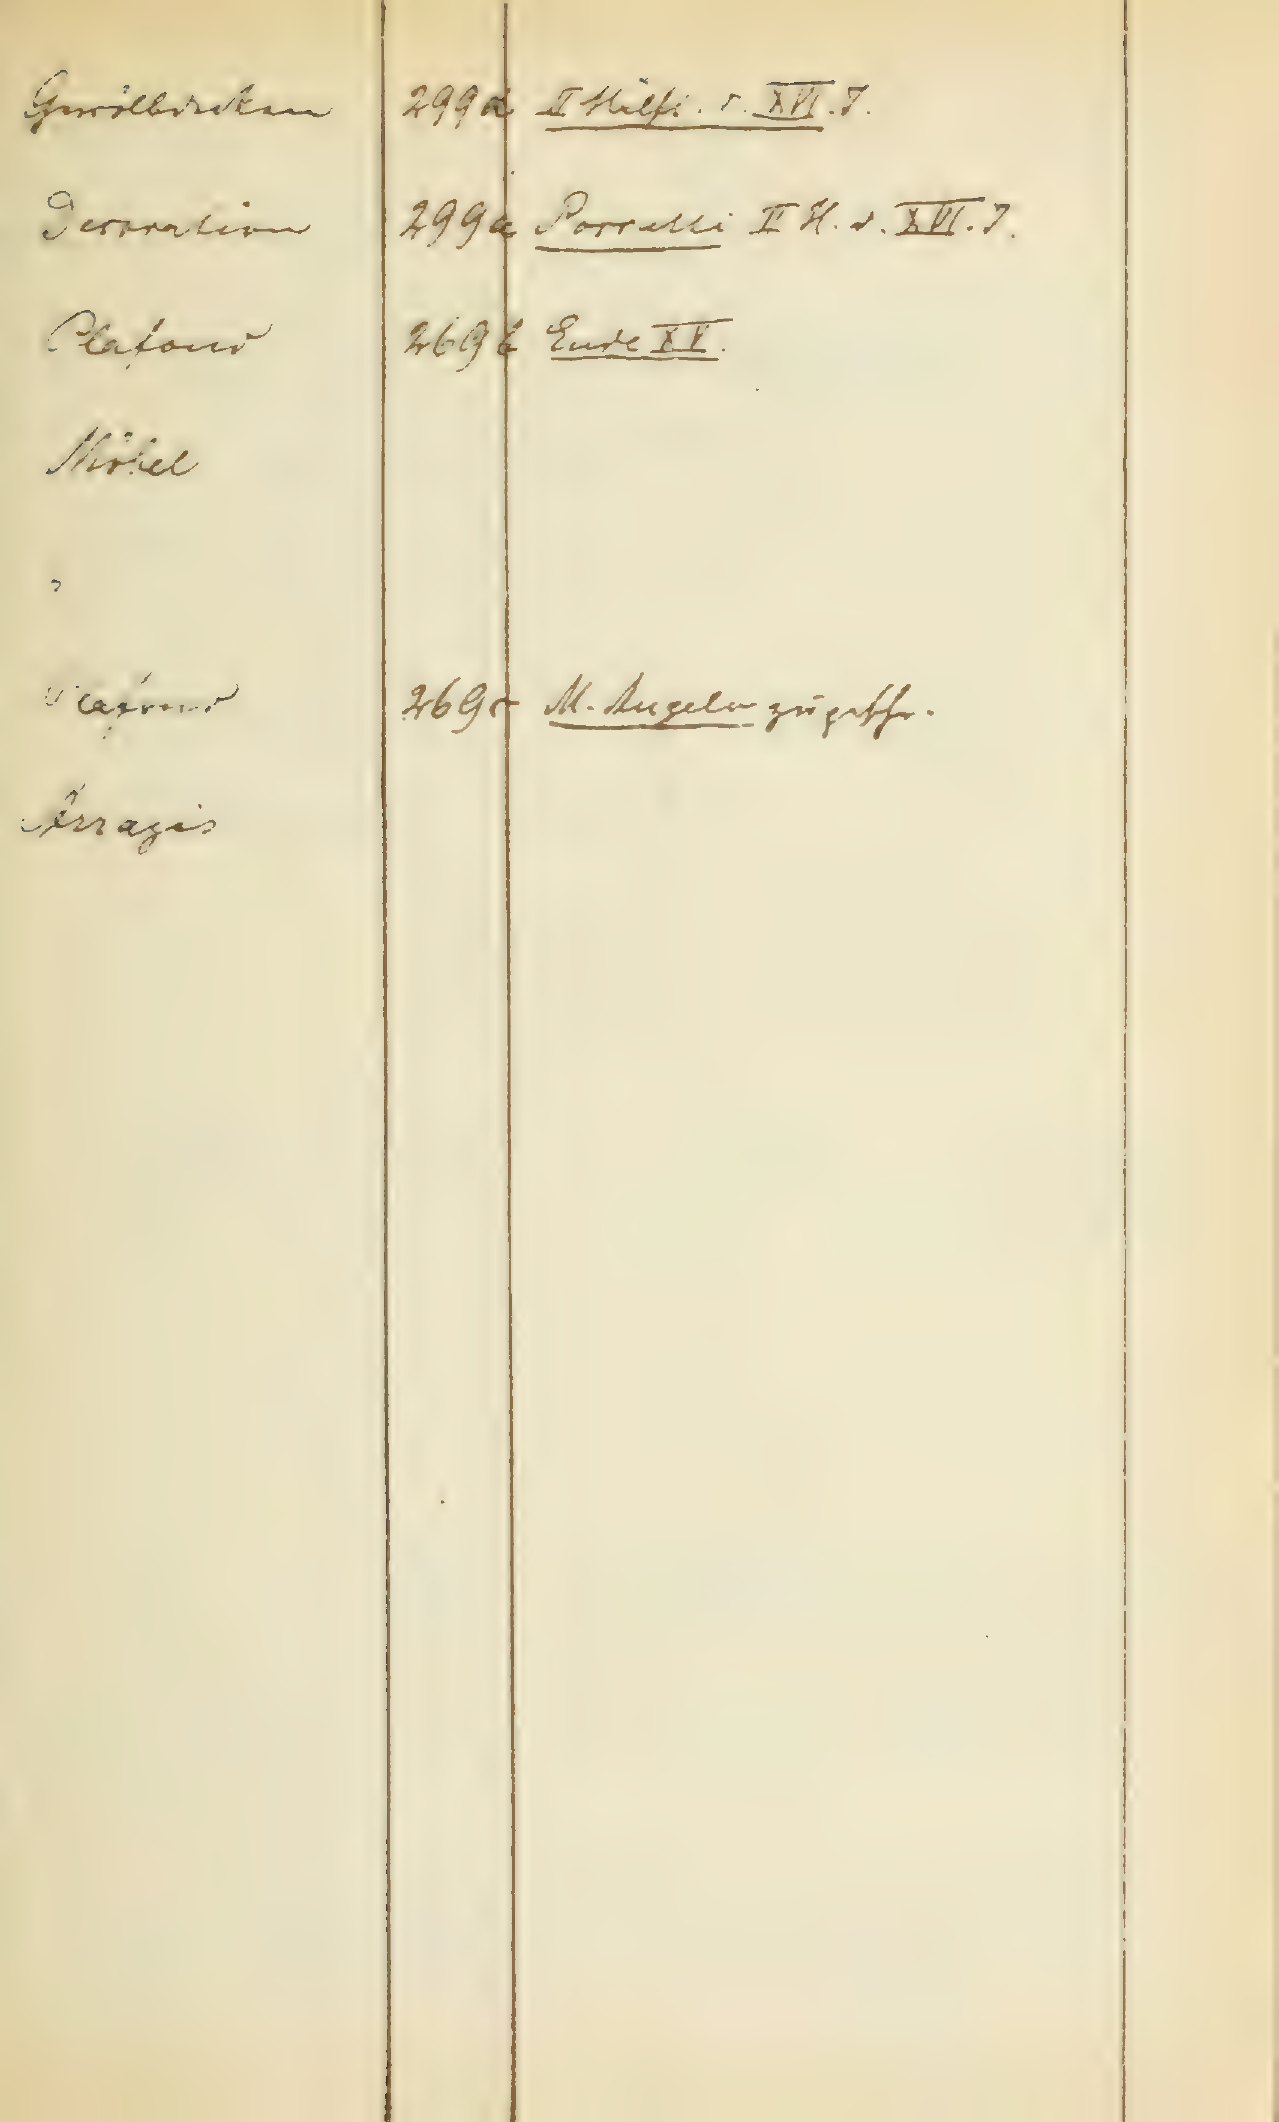 Gewölbdecken 299d II Hälfte. d. XVI. J.
Decoration 299a Porcetti II H. d. XVI. J.
Plafond 269b Ende XV.
Möbel
?
Plafond 269c M. Angelo zugeschr.
Arragis